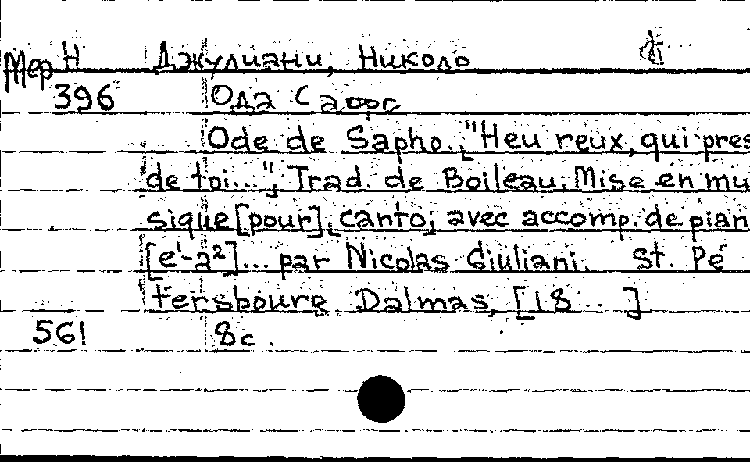 Мер Н Джулиани, Николо
396 Ода Сафо
Ode de Sapho. "Heureux, qui pres
de toi...", Trad. de Boileau. Mise en mu
sique [pour], canto, avec accomp. de pian
[e¹-a²]... par Nicolas Giuliani. St. Pé
tersbourg. Dalmas, [18 .. ]
561 8с.